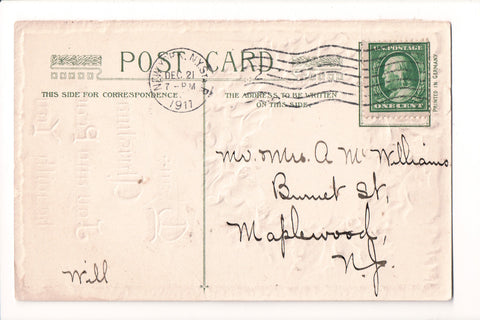 POST CARD
THIS SIDE FOR CORRESPONDENCE.
THE ADDRESS TO BE WRITTEN
ON THIS SIDE.
NEW
N.Y.
DEC 21
7-PM
1911
U.S. POSTAGE
ONE CENT
PRINTED IN GERMANY.
Mr. & Mrs. A McWilliams
Burnet St,
Maplewood,
N.J.
Will